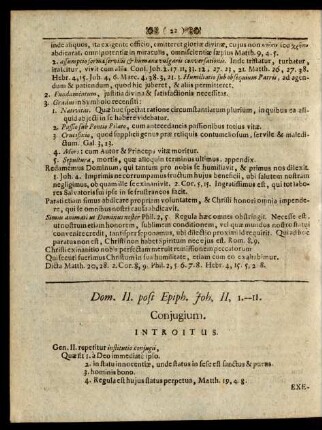 22
inde aliquos, ita exgente officio, emitteret gloriæ divinæ, cujus non
abditæ tæs. omnipotentiæ in miraculis, omniscientiæ sæpius Matth. 9, 4. 5.
2. assumpto forma servili & humana vulgari conversatione. Inde
lactatur, vivit cum aliis Conf. Joh. 2. 17. 11, 11. 12. 27. 21. Matth. 26, 27. 38.
Hebr. 4, 15. Joh. 4, 6. Marc. 4. 38. 3, 21. 3. Humiliatio sub obsequium Patris, ad agen-
dum & patiendum, quod hic juberet, & aliis præmitteret.
2. Fundamentum, justitia divina & satisfactionis necessitas.
3. Gradus in symbolo recensiti:
1. Nativitas. Quæ huc spectat ratione circumstantiarum plurium, in quibus ea ali-
quid abjecti in se habere videbatur.
2. Passio sub Pontio Pilato, cum antecedaneis passionibus totius vitæ.
3. Crucifixio, quod supplicii genus præ reliquis contumeliosum, servile & maledi-
ctum. Gal. 3, 13.
4. Mors: cum Autor & Princeps vitæ moritur.
5. Sepultura, mortis, quæ alioquin terminus ultimus. appendix.
Redamemus Dominum, qui tantum pro nobis se humiliavit, & primus nos dilexit.
1. Joh. 4. Imprimis ne corrumpamus fructum hujus beneficii, ubi salutem nostram
negligimus, ob quam ille se exinanivit. 2. Cor. 5, 15. Ingratissimus est, qui tot labo-
res Salvatoris sui ipse in se frustraneos facit.
Parati etiam simus abdicare propriam voluntatem, & Christi honori omnia impende-
re, qui se omnibus nostri causa abdicavit.
Simus animati ut Dominus noster Phil. 2, 5. Regula hæc omnes obstringit. Necesse est,
ut nostrum etiam honorem, sublimem conditionem, vel quæ mundus nostro fastigi
convenire credit, transire possimus, ubi dilectio proximi id requirit. Qui ad hoc
paratus non est, Christi non habet Spiritum nec ejus est. Rom. 8, 9.
Christi exinanitio nobis perfectam netvrii restitutionem peccatorum
Qui secuti fuerimus Christum in sua humilitate, etiam cum eo exaltabimur.
Dicta Matth. 20, 28. 2. Cor. 8, 9. Phil. 2, 5. 6. 7. 8. Hebr. 4, 15. 5, 2. 8.
Dom. II. post Epiph. Joh. II, 1.--11.
Conjugium.
INTROITUS.
Gen. II. reperitur institutio conjugii,
Quæ fit 1. à Deo immediatè ipso.
2. in statu innocentiæ, unde status in se se est sanctus & purus.
3. hominis bono.
4. Regula est hujus status perpetua, Matth. 19, 4. 8.
EXE-